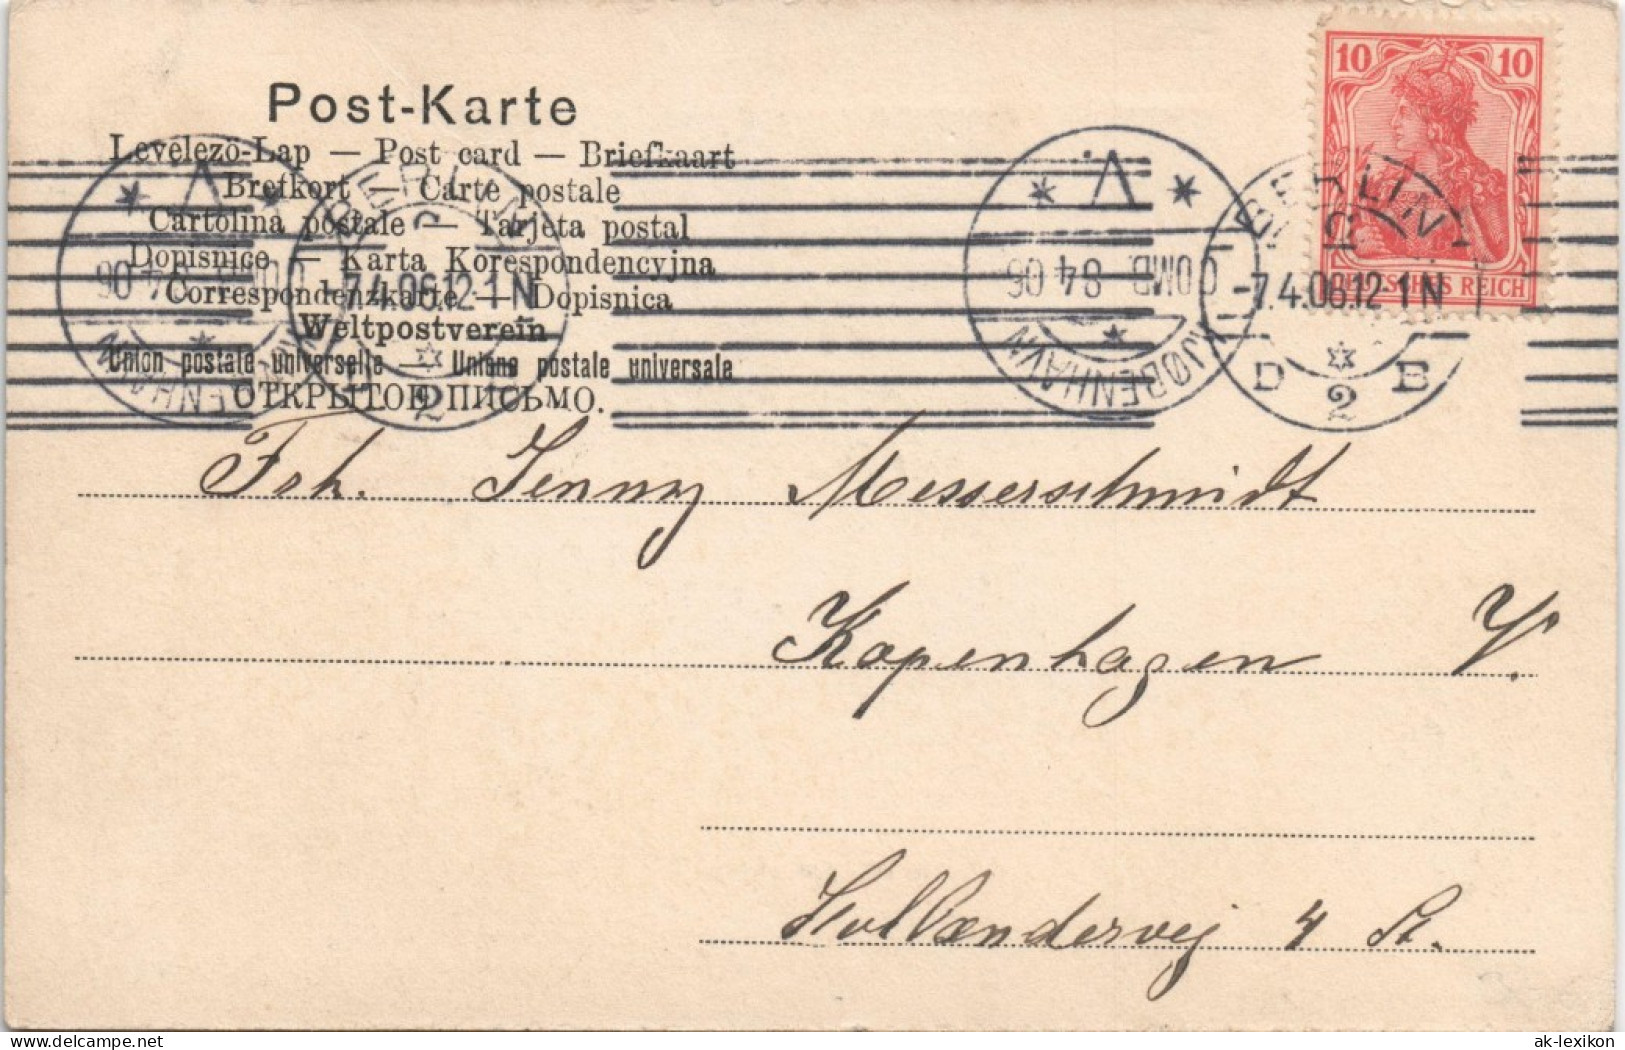 10 10
Post-Karte
Levelező-Lap — Post card — Briefkaart
Brefkort — Carte postale
Cartolina postale — Tarjeta postal
Dopisnice — Karta Korespondencyjna
Correspondenzkarte — Dopisnica
Weltpostverein
Union postale universelle — Unione postale universale
ОТКРЫТОЕ ПИСЬМО.
BERLIN
C
-7.4.06.12-1N
2
KJØBENHAVN
V
OMB. 8 4 06
BERLIN
C
-7.4.06.12-1N
D 2 E
REICH
Frh. Jenny Messerschmidt
Kopenhagen V.
Hollændervej 4 St.
delcampe.net
ak-lexikon